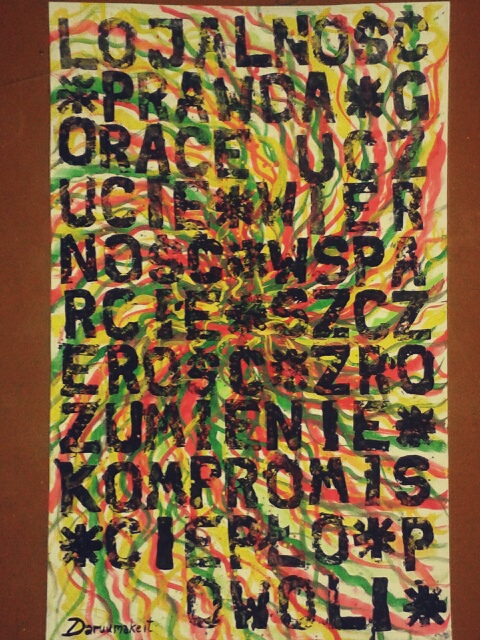 LOJALNOSC
*PRAWDA*G
ORACE UCZ
UCIE*WIER
NOSC*WSPA
RCIE*SZCZ
EROSC*ZRO
ZUMIENIE*
KOMPROMIS
*CIEPŁO*P
OWOLI*
Daruumakeit